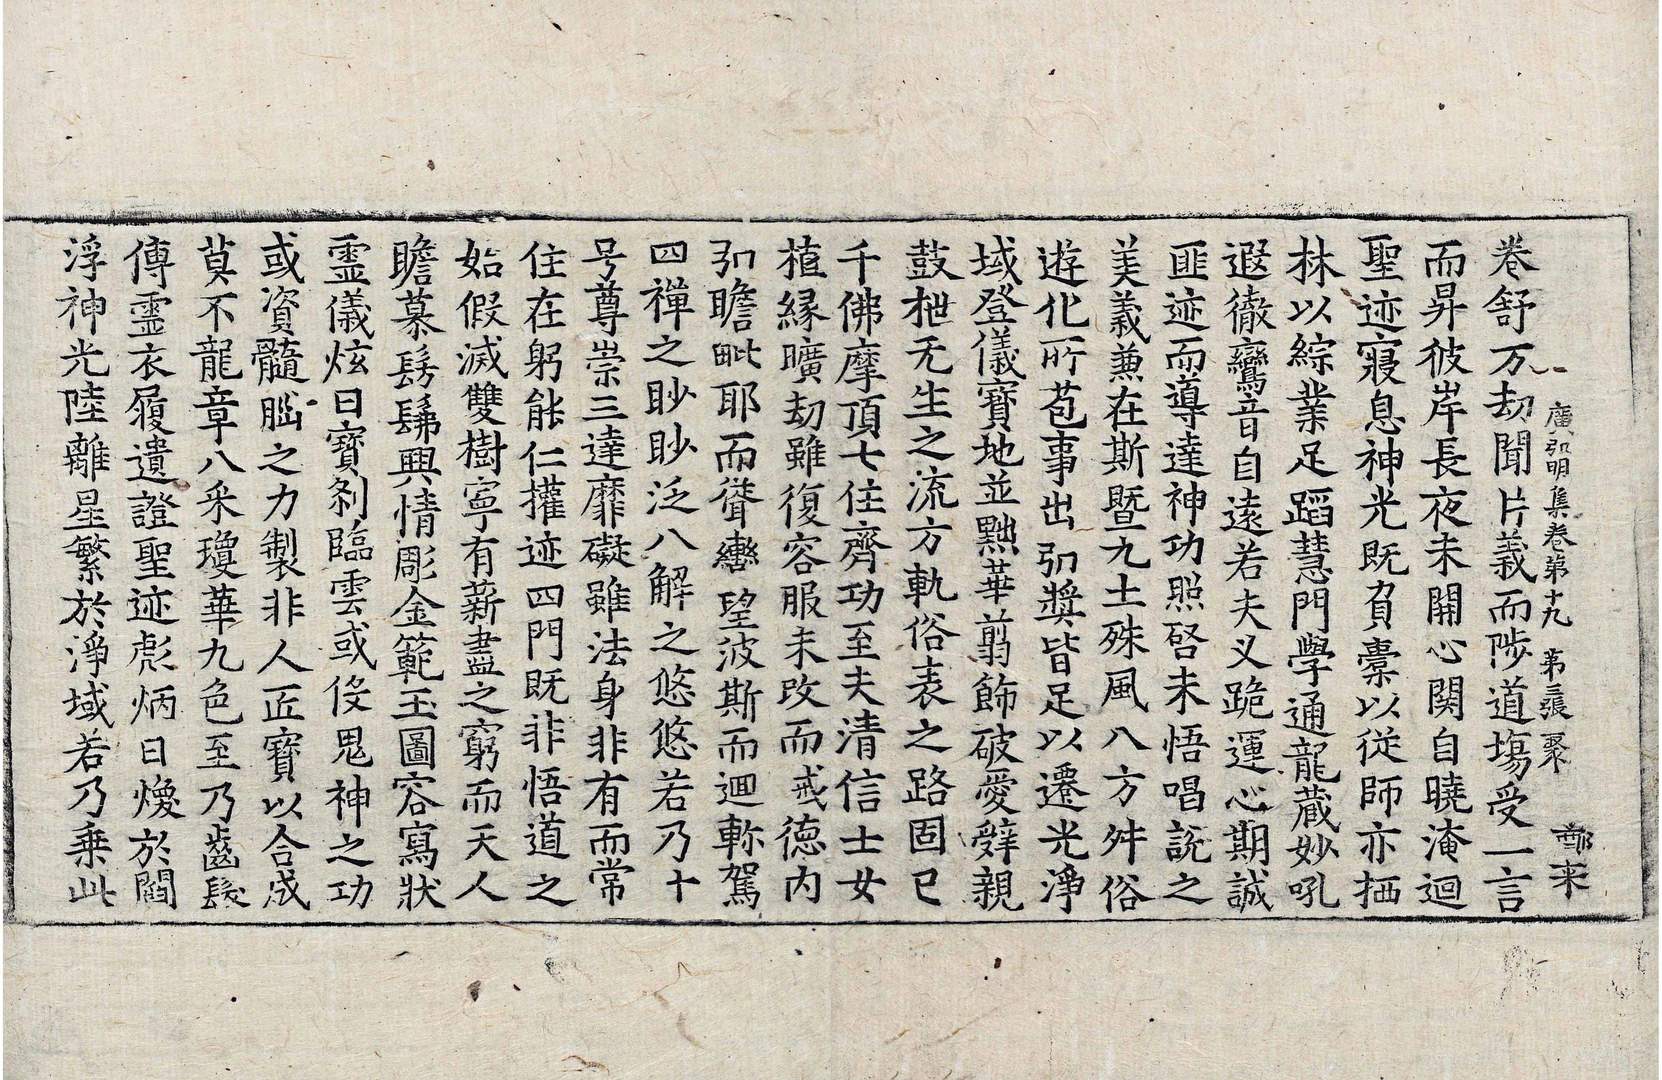 廣弘明集卷第十九 第三張 聚
卷舒万劫聞片義而陟道場受一言
而昇彼岸長夜未開心関自曉淹迴
聖迹寢息神光旣負橐以從師亦栖
林以綜業足蹈慧門學通龍藏妙吼
遐徹鸞音自遠若夫义跪運心期誠
匪迹而導達神功照啓未悟唱説之
美義兼在斯暨九土殊風八方舛俗
遊化所苞事出弘奬皆足以遷光淨
域登儀寶地並黜華翦飾破愛辤親
鼓枻无生之流方軌俗表之路固已
千佛摩頂七住齊功至夫清信士女
植縁曠劫雖復容服未改而戒德內
弘瞻毗耶而聳轡望波斯而迴斬駕
四禪之眇眇泛八解之悠悠若乃十
号尊崇三達靡礙雖法身非有而常
住在躬能仁權迹四門旣非悟道之
始假滅雙樹寧有薪盡之窮而天人
瞻慕髣髴興情彫金範玉圖容寫狀
靈儀炫日寶刹臨雲或役鬼神之功
或資髓腦之力製非人匠寶以合成
莫不龍章八采瓊華九色至乃齒髮
傳靈衣履遺證聖迹彪炳日煥於閻
浮神光陸離星繁於淨域若乃乗此